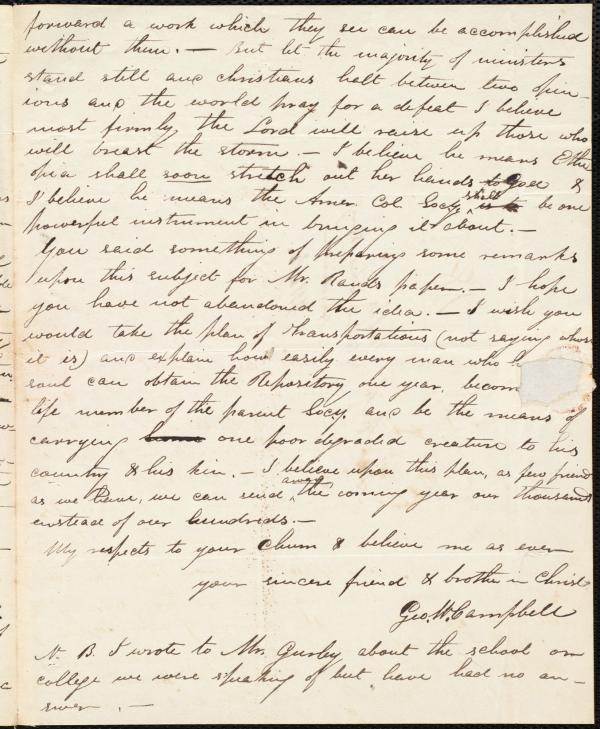 forward a work which they see can be accomplished
without them. — But let the majority of ministers
stand still and christians halt between two opin-
ions and the world pray for a defeat I believe
most firmly, the Lord will raise up those who
will breast the storm. — I believe he means Ethi
opia shall soon stretch out her hands to God &
I believe he means the Amer. Col. Socy. shall be one
powerful instrument in bringing it about. —
You said something of preparing some remarks
upon this subject for Mr. Rands paper. — I hope
you have not abandoned the idea. — I wish you
would take the plan of transportations (not saying whose
it is) and explain how easily every man who
soul can obtain the Repository one year, becom
life member of the parent Socy. and be the means of
carrying one poor degraded creature to his
country & his kin. — I believe upon this plan, as few friends
as we have, we can send away the coming year our thousands
instead of our hundreds. —
My respects to your chum & believe me as ever
your sincere friend & brother in Christ
Geo. W. Campbell
N. B. I wrote to Mr. Gurley about the school or
college we were speaking of but have had no an-
swer. —